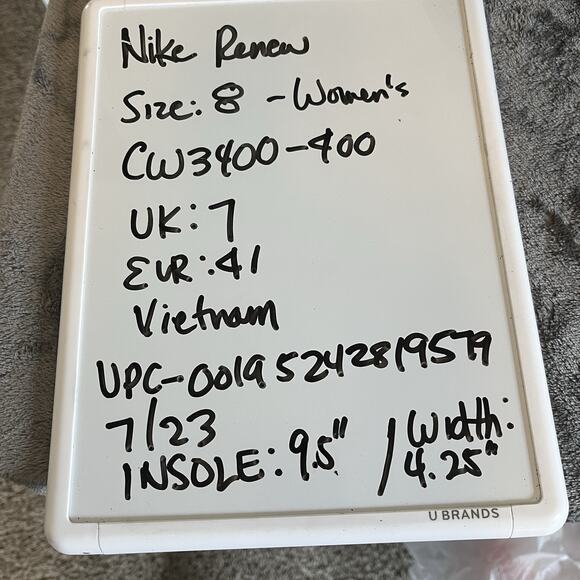 Nike Renew
Size: 8 - Women's
CW3400-400
UK: 7
EUR: 41
Vietnam
UPC-00195242819579
7/23
INSOLE: 9.5" / Width: 4.25"
U BRANDS